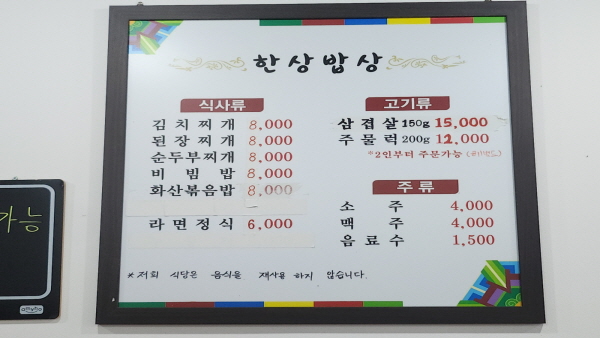 한상밥상
식사류
김치찌개 8,000
된장찌개 8,000
순두부찌개 8,000
비빔밥 8,000
화산볶음밥 8,000
라면정식 6,000
고기류
삼겹살 150g 15,000
주물럭 200g 12,000
*2인부터 주문가능
주류
소주 4,000
맥주 4,000
음료수 1,500
*저희 식당은 음식을 재사용 하지 않습니다.
가능